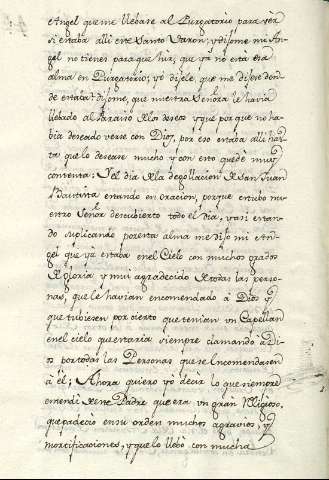 el Angel que me llebase al Purgatorio para ver
si estaba alli este Santo Varon; y dijome mi An-
gel no tienes para que hir, que ya no esta esa
alma en Purgatorio; yo dijele, que me dijese don-
de estaba? dijome, que nuestra Señora le havia
llebado al Paraiso de los deseos y que porque no ha-
bia deseado verse con Dios, por eso estaba alli has-
ta que lo desease mucho y con esto quede muy
contenta: Y el dia de la degollacion de San Juan
Bautista estando en oracion, porque estubo nu-
estro Señor descubierto todo el dia, y asi estan-
do suplicando por esta alma me dijo mi An-
gel que ya estaba en el Cielo con muchos grados
de gloria y mui agradecido de todas las perso-
nas, que le havian encomendado à Dios y
que tubiesen por cierto que tenian un Capellan
en el cielo que estaria siempre clamando à Di-
os por todas las Personas que se encomendasen
à èl; Ahora quiero yo decir lo que siempre
entendi de este Padre que era un gran Religioso,
que padecio en su orden muchos agravios, y
mortificaciones, y que lo llebò con mucha